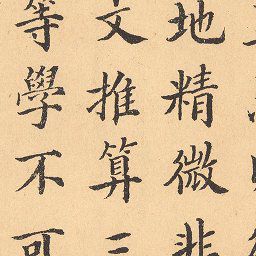 地精微非
文推算三
等學不可